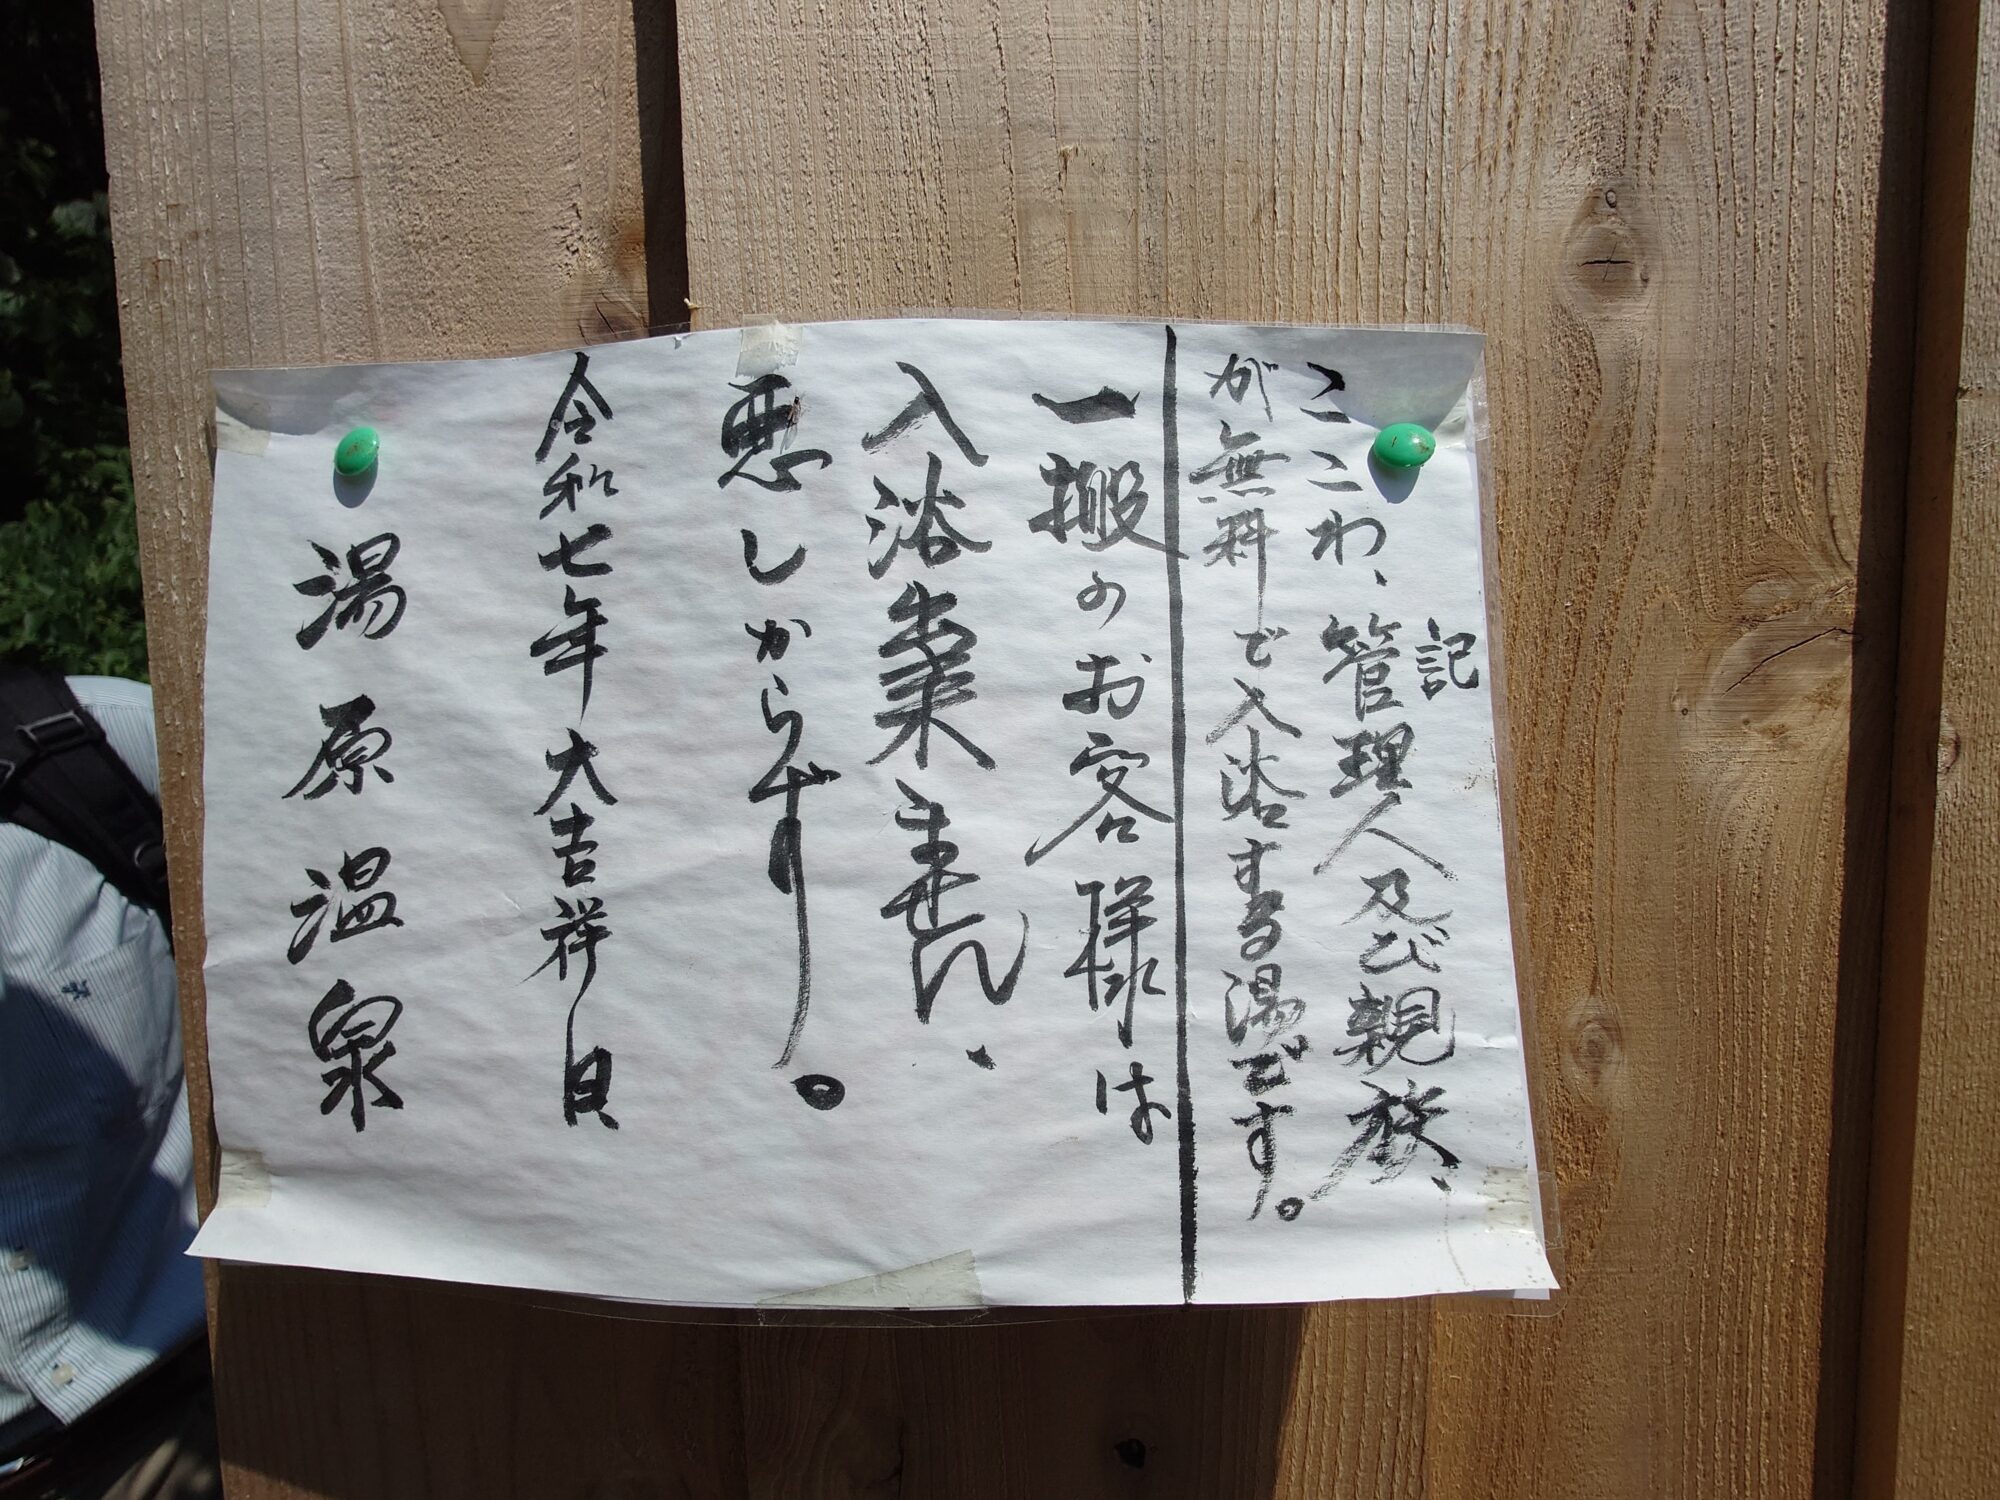 記
ここわ、管理人及び親族、
が無料で入浴する湯です。
一搬のお客様は
入浴出来ません、
悪しからず。
令和七年大吉祥日
湯原温泉